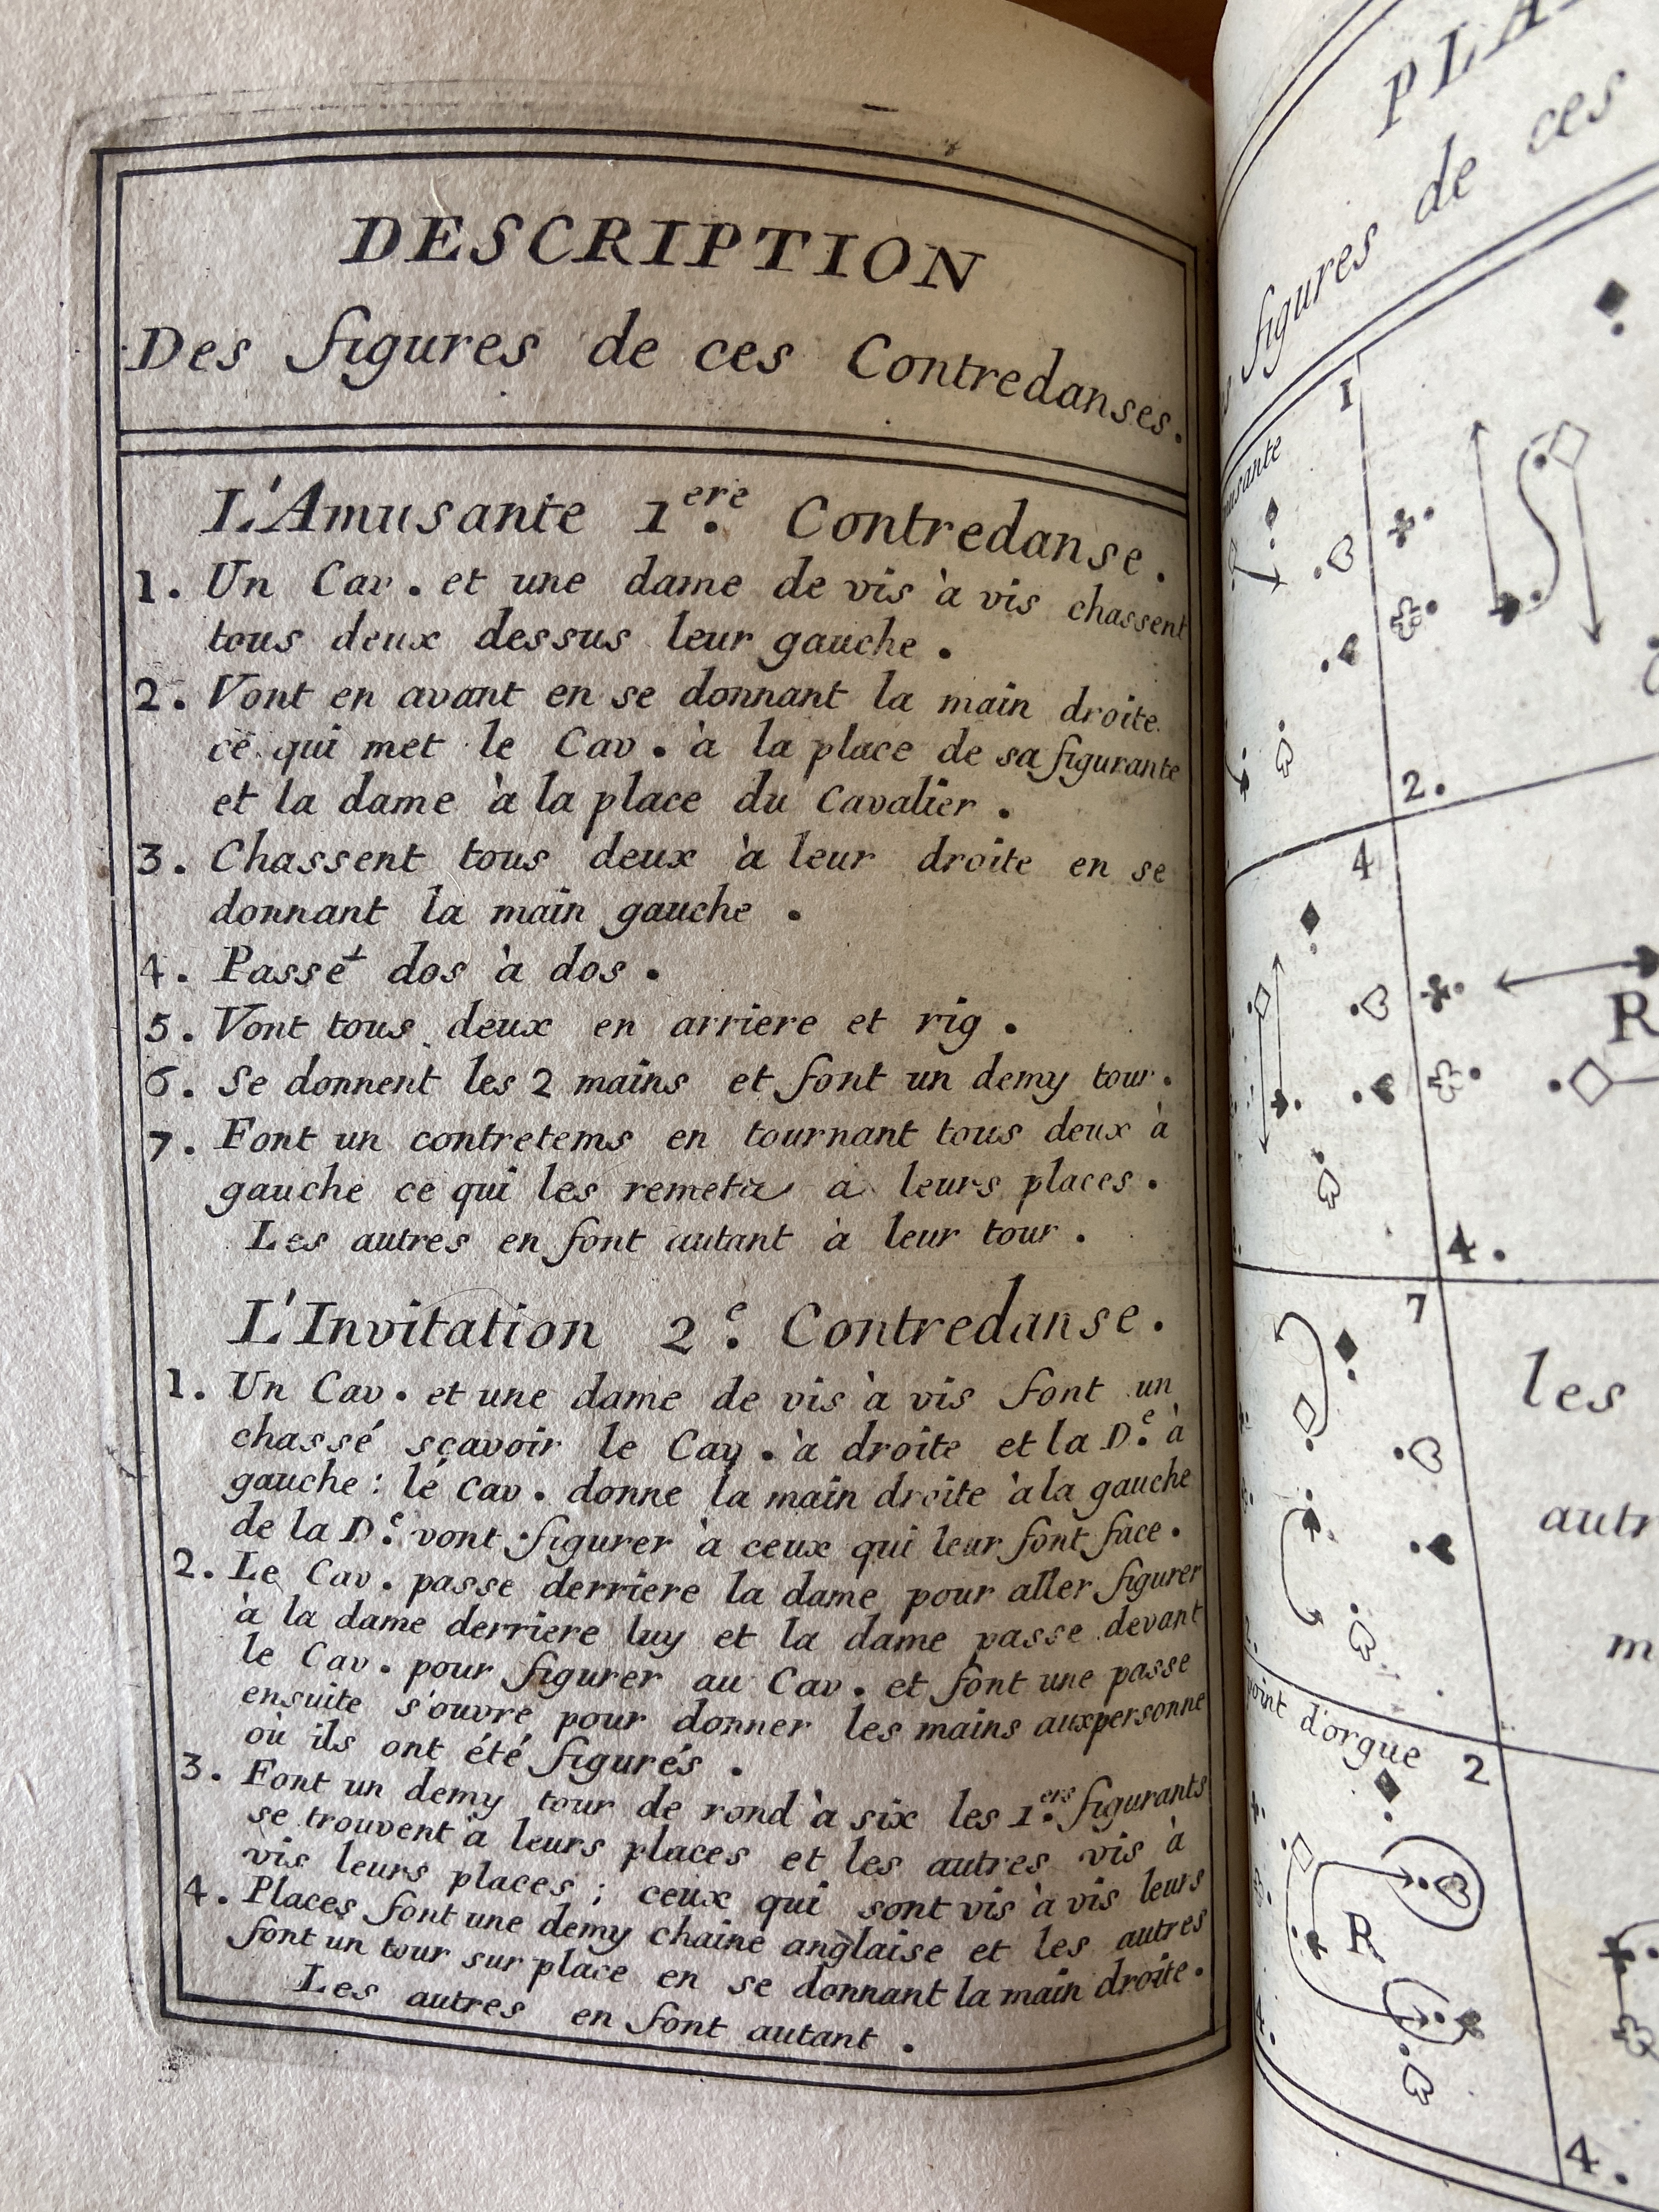 DESCRIPTION
Des figures de ces Contredanses.
L'Amusante 1.ere Contredanse.
1. Un Cav. et une dame de vis à vis chassent
tous deux dessus leur gauche.
2. Vont en avant en se donnant la main droite
ce qui met le Cav. à la place de sa figurante
et la dame à la place du Cavalier.
3. Chassent tous deux à leur droite en se
donnant la main gauche.
4. Passét dos à dos.
5. Vont tous deux en arriere et rig.
6. Se donnent les 2 mains et font un demy tour.
7. Font un contretems en tournant tous deux à
gauche ce qui les remeta a leurs places.
Les autres en font autant à leur tour.
L'Invitation 2.e Contredanse.
1. Un Cav. et une dame de vis à vis font un
chassé sçavoir le Cav. à droite et la D.e à
gauche: le Cav. donne la main droite à la gauche
de la D.e vont figurer à ceux qui leur font face.
2. Le Cav. passe derriere la dame pour aller figurer
à la dame derriere luy et la dame passe devant
le Cav. pour figurer au Cav. et font une passe
ensuite s'ouvre pour donner les mains aux personne
où ils ont été figurés.
3. Font un demy tour de rond à six les 1.ers figurants
se trouvent à leurs places et les autres vis à
vis leurs places; ceux qui sont vis à vis leurs
4. Places font une demy chaine anglaise et les autres
font un tour sur place en se donnant la main droite.
Les autres en font autant.
PLA
figures de ces
1
2.
4
R
4.
7
les
autr
m
point d'orgue
2
R
4.
4.